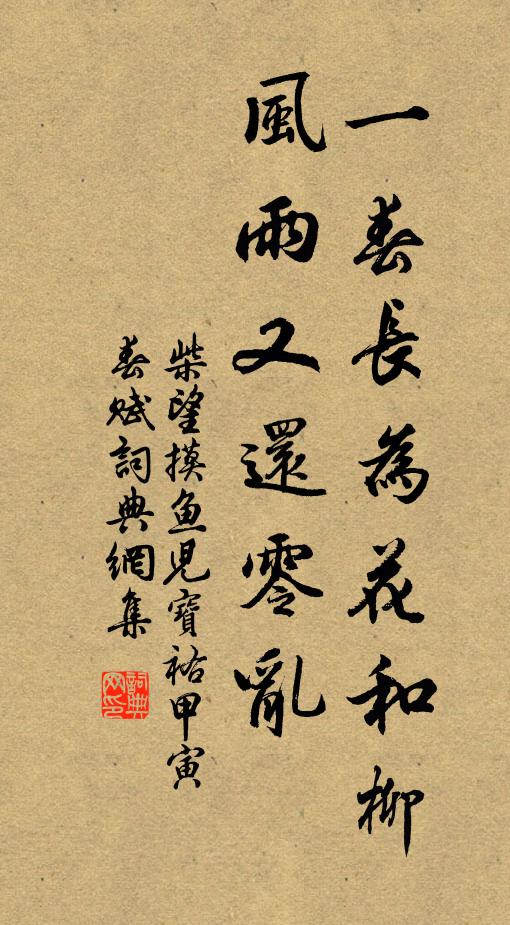 一春長為花和柳
風雨又還零亂
柴望摸魚児寶祐甲寅
春賦詞典網集
詞典網印